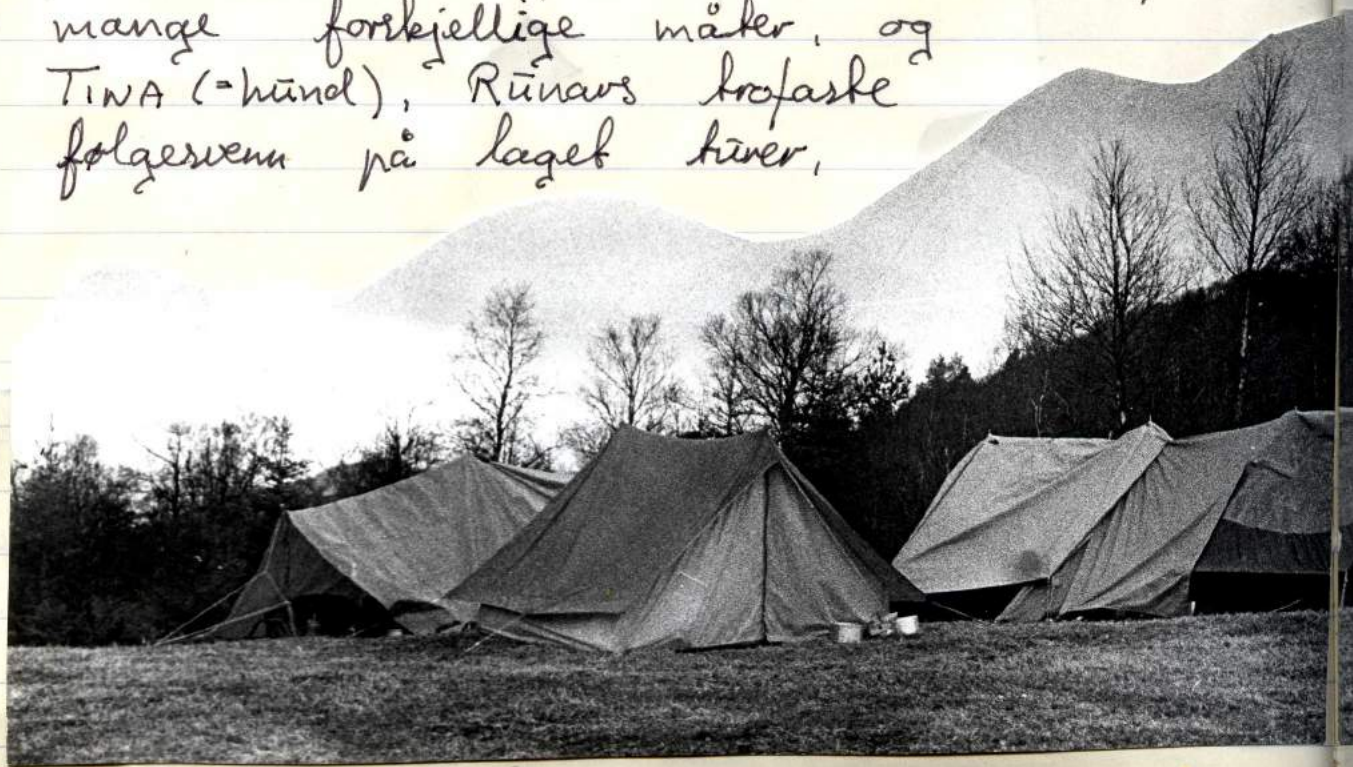 mange forskjellige måter, og
TINA (=hund), Runars trofaste
følgesvenn på laget turer,